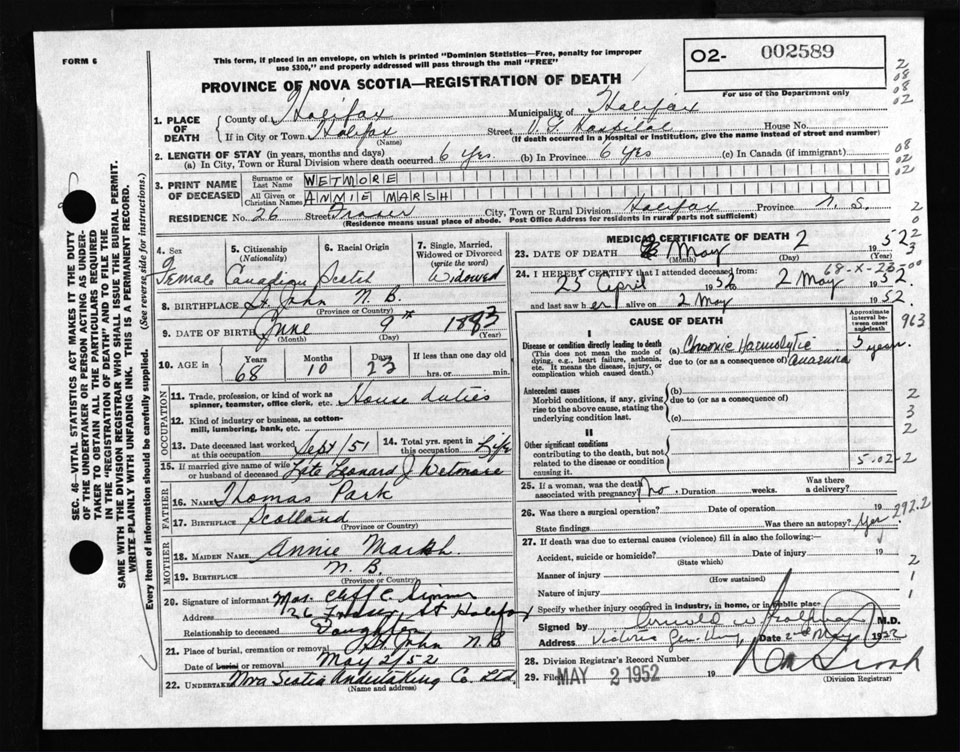 FORM 6
This form, if placed in an envelope, on which is printed "Dominion Statistics—Free, penalty for improper
use $300," and properly addressed will pass through the mail "FREE"
O2- 002589
For use of the Department only
PROVINCE OF NOVA SCOTIA—REGISTRATION OF DEATH
1. PLACE OF DEATH
County of Halifax Municipality of Halifax
If in City or Town Halifax Street V. G. Hospital House No.
(Name) (If death occurred in a hospital or institution, give the name instead of street and number)
2. LENGTH OF STAY (in years, months and days)
(a) In City, Town or Rural Division where death occurred 6 yrs. (b) In Province 6 yrs (c) In Canada (if immigrant)
3. PRINT NAME OF DECEASED
Surname or Last Name WETMORE
All Given or Christian Names ANNIE MARSH
RESIDENCE No. 26 Street Fraser City, Town or Rural Division Halifax Province N. S.
(Residence means usual place of abode. Post Office Address for residents in rural parts not sufficient)
4. Sex Female
5. Citizenship (Nationality) Canadian
6. Racial Origin Scotch
7. Single, Married, Widowed or Divorced (write the word) Widowed
8. BIRTHPLACE St. John N. B.
(Province or Country)
9. DATE OF BIRTH June 9th 1883
(Month) (Day) (Year)
10. AGE in Years 68 Months 10 Days 23 If less than one day old hrs. or min.
OCCUPATION
11. Trade, profession, or kind of work as spinner, teamster, office clerk, etc. House duties
12. Kind of industry or business, as cotton-mill, lumbering, bank, etc.
13. Date deceased last worked at this occupation Sept/51
14. Total yrs. spent in this occupation Life
15. If married give name of wife or husband of deceased Late Leonard J Wetmore
FATHER
16. NAME Thomas Park
17. BIRTHPLACE Scotland
(Province or Country)
MOTHER
18. MAIDEN NAME Annie Marsh
19. BIRTHPLACE N. B.
(Province or Country)
20. Signature of informant Mrs. Cliff C.
Address 26 Fraser St Halifax
Relationship to deceased Daughter
21. Place of burial, cremation or removal St. John N. B
Date of burial or removal May 2/52
22. Undertaker Nova Scotia Undertaking Co. Ltd.
(Name and address)
MEDICAL CERTIFICATE OF DEATH
23. DATE OF DEATH May 2 1952
(Month) (Day) (Year)
68-X-23
24. I HEREBY CERTIFY that I attended deceased from:
25 April 1952 to 2 May 1952.
and last saw her alive on 2 May 1952.
CAUSE OF DEATH
Approximate interval between onset and death
I
Disease or condition directly leading to death
(This does not mean the mode of dying, e.g., heart failure, asthenia, etc. It means the disease, injury, or complication which caused death.)
(a) Chronic Haemolytic 5 years
due to (or as a consequence of) anaemia
Antecedent causes
Morbid conditions, if any, giving rise to the above cause, stating the underlying condition last.
(b)
due to (or as a consequence of)
(c)
II
Other significant conditions
contributing to the death, but not related to the disease or condition causing it.
5-02-2
25. If a woman, was the death associated with pregnancy? no. Duration weeks. Was there a delivery?
26. Was there a surgical operation? Date of operation 19
State findings Was there an autopsy? Yes.
292.2
27. If death was due to external causes (violence) fill in also the following:
Accident, suicide or homicide? Date of injury 19
(State which)
Manner of injury
(How sustained)
Nature of injury
Specify whether injury occurred in industry, in home, or in public place
Signed by Arnold W M.D.
Address Victoria Gen. Date 2nd May 1952
28. Division Registrar's Record Number
29. Filed MAY 2 1952 19
(Division Registrar)
SEC. 46—VITAL STATISTICS ACT MAKES IT THE DUTY
OF THE UNDERTAKER OR PERSON ACTING AS UNDER-
TAKER TO OBTAIN ALL THE PARTICULARS REQUIRED
IN THE "REGISTRATION OF DEATH" AND TO FILE THE
SAME WITH THE DIVISION REGISTRAR WHO SHALL ISSUE THE BURIAL PERMIT.
WRITE PLAINLY WITH UNFADING INK. THIS IS A PERMANENT RECORD.
Every item of information should be carefully supplied. (See reverse side for instructions.)
2
08
08
02
08
02
02
2
0
2
3
00
963
2
3
2
2
1
1